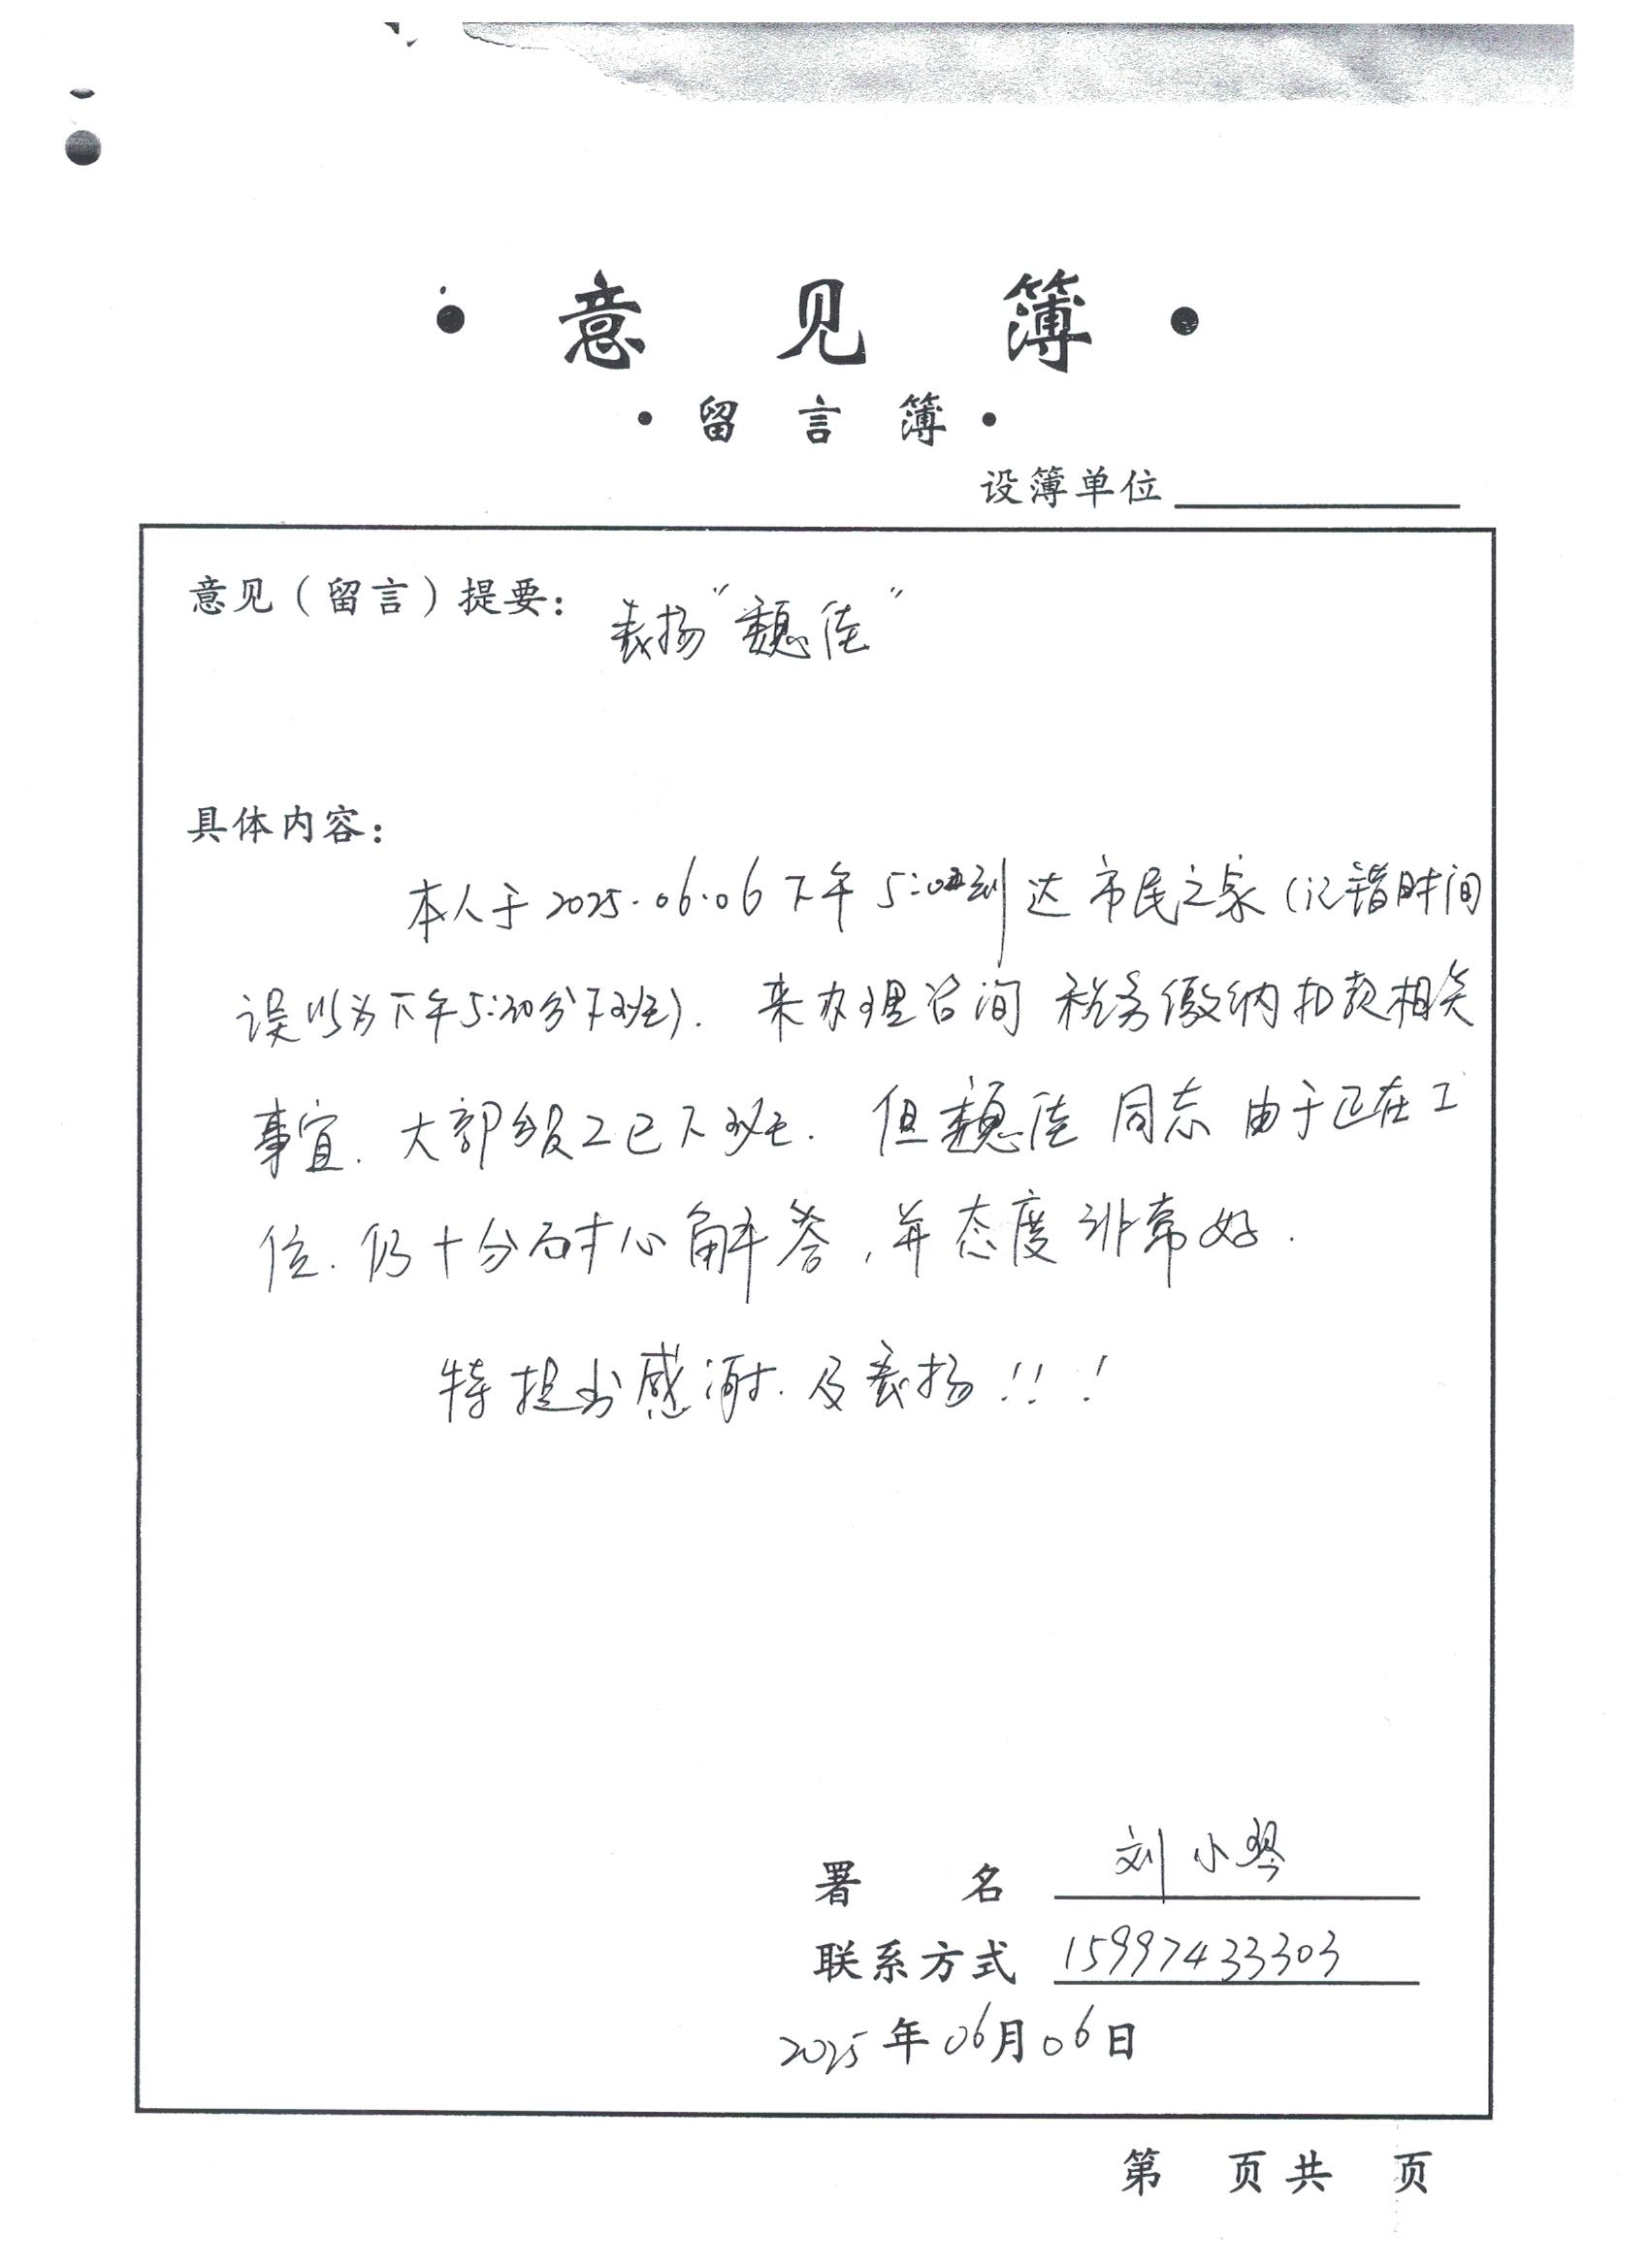 ·意见簿·
·留言簿·
设簿单位
意见（留言）提要：表扬“魏佳”
具体内容：
本人于2025.06.06下午5:02到达市民之家（记错时间
误以为下午5:30分下班）. 来办理咨询税务缴纳扣款相关
事宜. 大部分员工已下班. 但魏佳同志由于还在工
位. 仍十分耐心解答, 并态度非常好.
特提出感谢. 及表扬!!!
署 名 刘小琴
联系方式 15997433303
2025年06月06日
第 页共 页